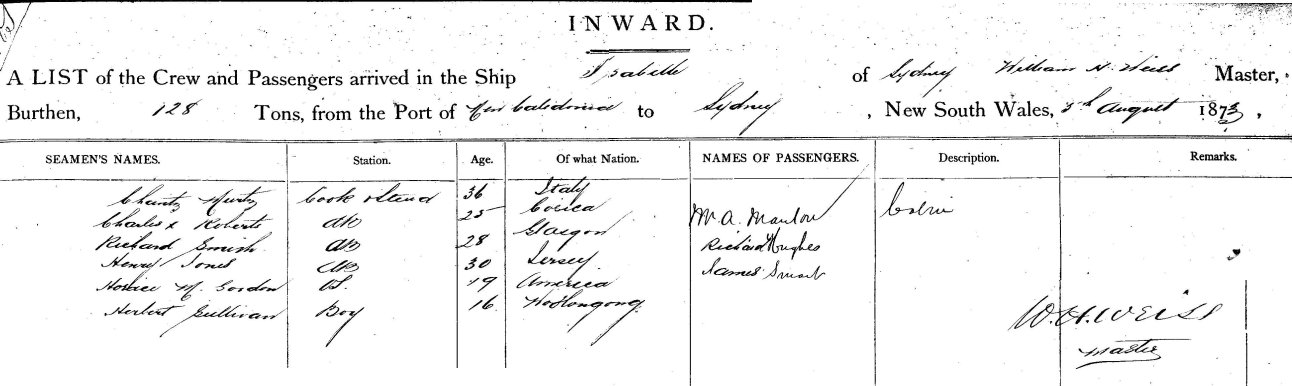 INWARD.
A LIST of the Crew and Passengers arrived in the Ship Isabella of Sydney William H. Weiss Master,
Burthen, 128 Tons, from the Port of New Caledonia to Sydney, New South Wales, August 1873,
SEAMEN'S NAMES. Station. Age. Of what Nation. NAMES OF PASSENGERS. Description. Remarks.
Cook 36 Italy
Charles Roberts AB 25 Corica Mr A. Manlow Cabin
Richard Smish AB 28 Glasgow Richard Hughes
Henry Jones AB 30 Jersey James Smart
Horice M. Gordon OS. 19 America
Herbert Sullivan Boy 16 Woolongong
W.H. WEISS
Master